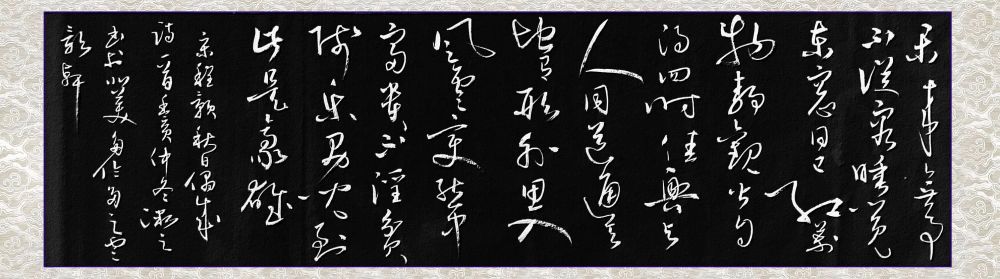 閒來無事
不從容睡覺
東窗日已紅萬
物靜觀皆自
得四時佳興與
人同道通天
地有形外思入
風雲變態中
富貴不淫貧
賤樂男兒到
此是豪雄
宋程顥秋日偶成
詩一首 仲冬
書於北美多倫多之雲
軒